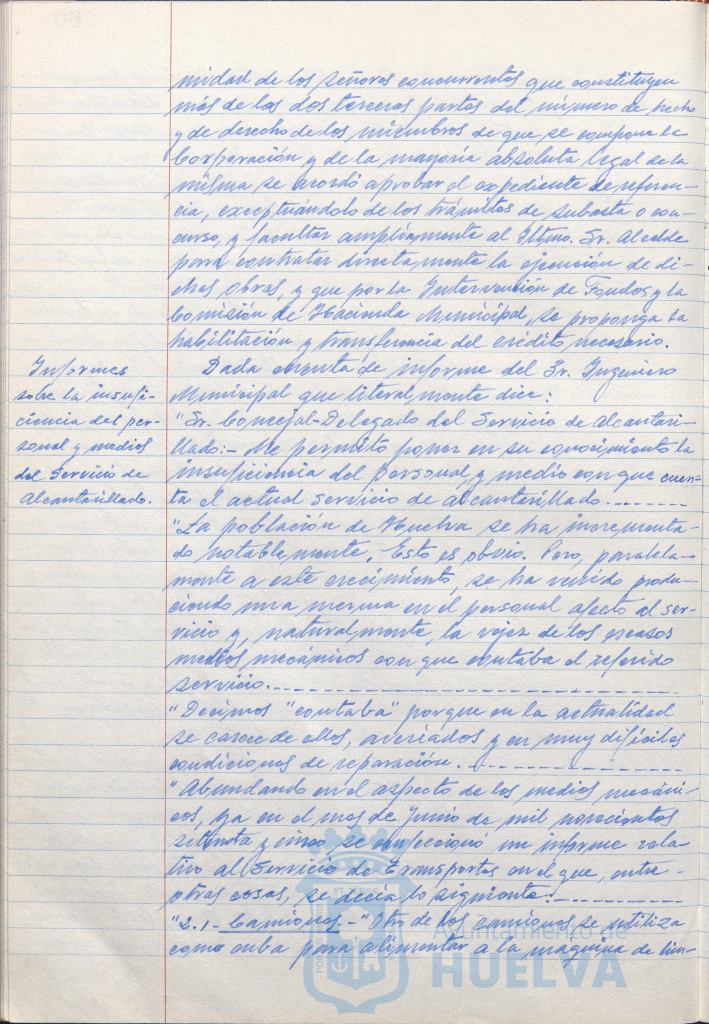 nidad de los señores concurrentes que constituyen
más de las dos terceras partes del número de hecho
y de derecho de los miembros de que se compone la
Corporación y de la mayoría absoluta legal de la
misma se acordó aprobar el expediente de referen-
cia, exceptuándolo de los trámites de subasta o con-
curso, y facultar ampliamente al Iltmo. Sr. Alcalde
para contratar directamente la ejecución de di-
chas obras, y que por la Intervención de Fondos y la
Comisión de Hacienda Municipal, se proponga la
habilitación y transferencia del crédito necesario.
Informes
sobre la insufi-
ciencia del per-
sonal y medios
del Servicio de
Alcantarillado.
Dada cuenta de informe del Sr. Ingeniero
Municipal que literalmente dice:
"Sr. Concejal-Delegado del Servicio de Alcantari-
llado:- Me permito poner en su conocimiento la
insuficiencia del personal, y medio con que cuen-
ta el actual servicio de alcantarillado.-------
"La población de Huelva se ha incrementa-
do notablemente. Esto es obvio. Pero, paralela-
mente a este crecimiento, se ha venido produ-
ciendo una merma en el personal afecto al ser-
vicio y, naturalmente, la vejez de los escasos
medios mecánicos con que contaba el referido
servicio.--------------------------
"Decimos "contaba" porque en la actualidad
se carece de ellos, averiados y en muy difíciles
condiciones de reparación.--------------
"Abundando en el aspecto de los medios mecáni-
cos, ya en el mes de Junio de mil novecientos
setenta y cinco se confeccionó un informe rela-
tivo al Servicio de Transportes en el que, entre
otras cosas, se decía lo siguiente:---------
"2.1- Camiones.- "Otro de los camiones se utiliza
como cuba para alimentar a la máquina de lim-
Ayuntamiento de
HUELVA